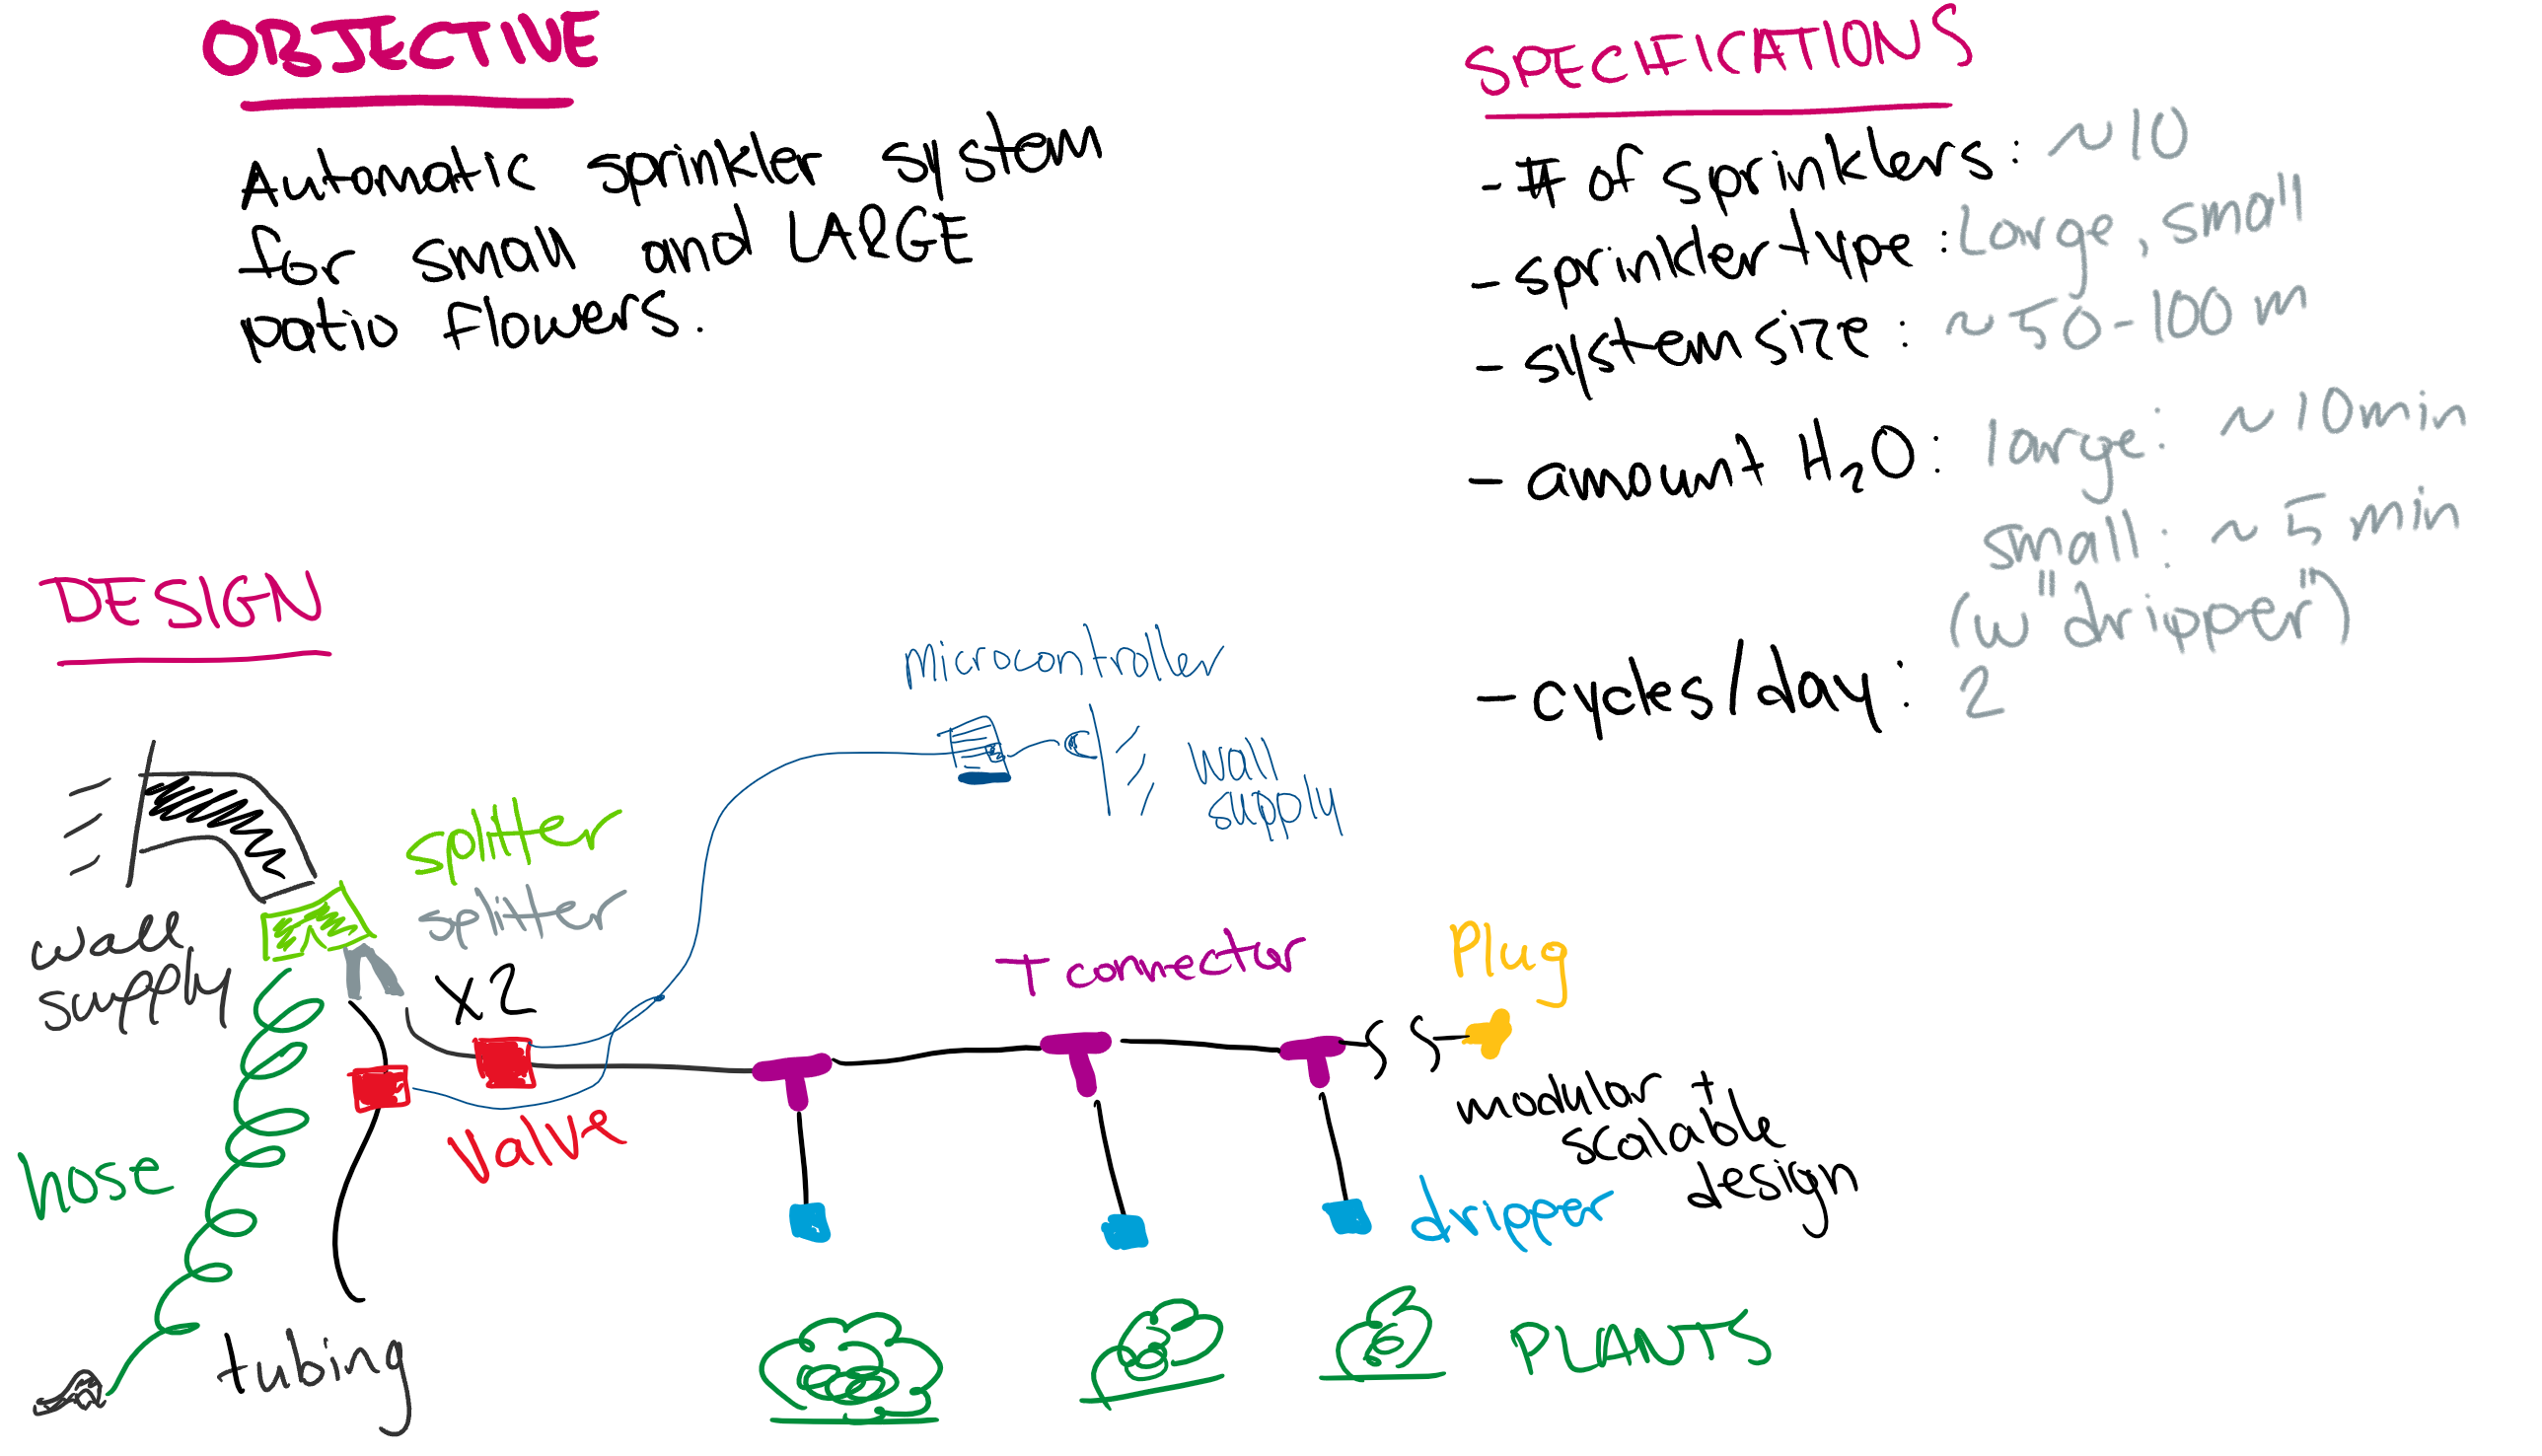 OBJECTIVE
Automatic sprinkler system
for small and LARGE
patio flowers.
SPECIFICATIONS
- # of sprinklers: ~10
- sprinkler type: Large, small
- system size: ~50-100 m
- amount H₂O: large: ~10min
small: ~5 min
(w "dripper")
- cycles/day: 2
DESIGN
microcontroller
wall
supply
splitter
splitter
x2
wall
supply
T connector
Plug
Valve
modular +
scalable
design
hose
dripper
tubing
PLANTS